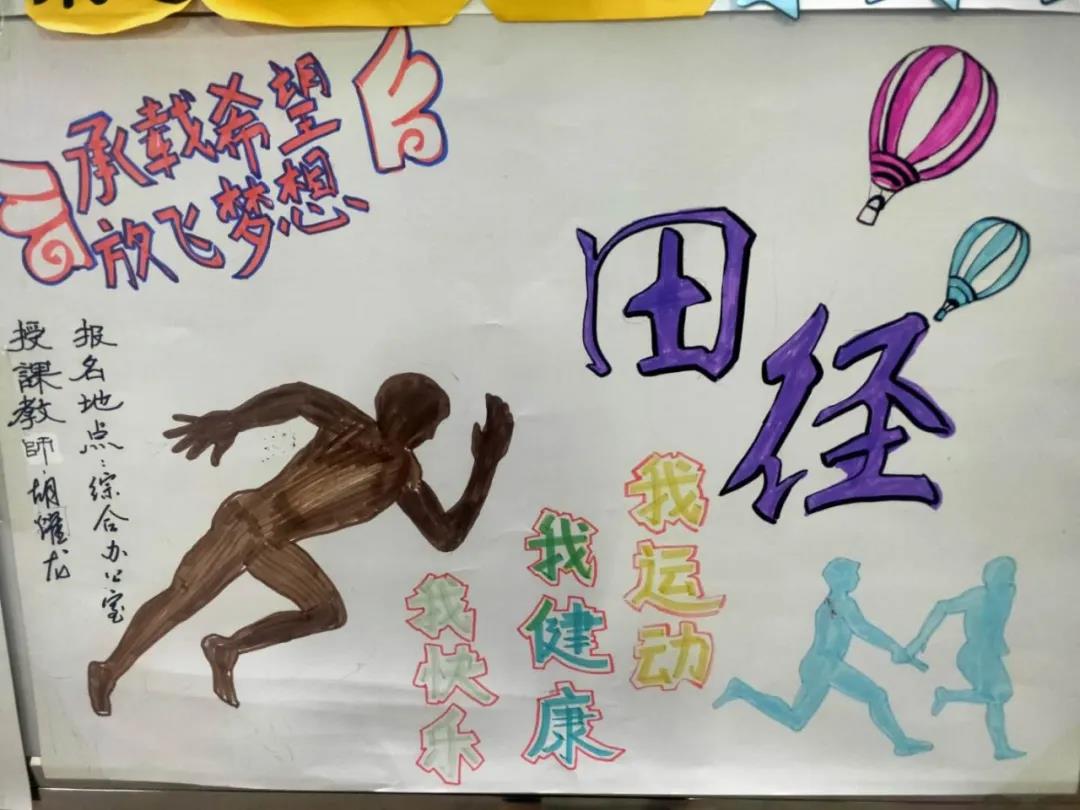 承载希望
放飞梦想
田径
我运动
我健康
我快乐
报名地点:综合办公室
授課教師:胡耀龙